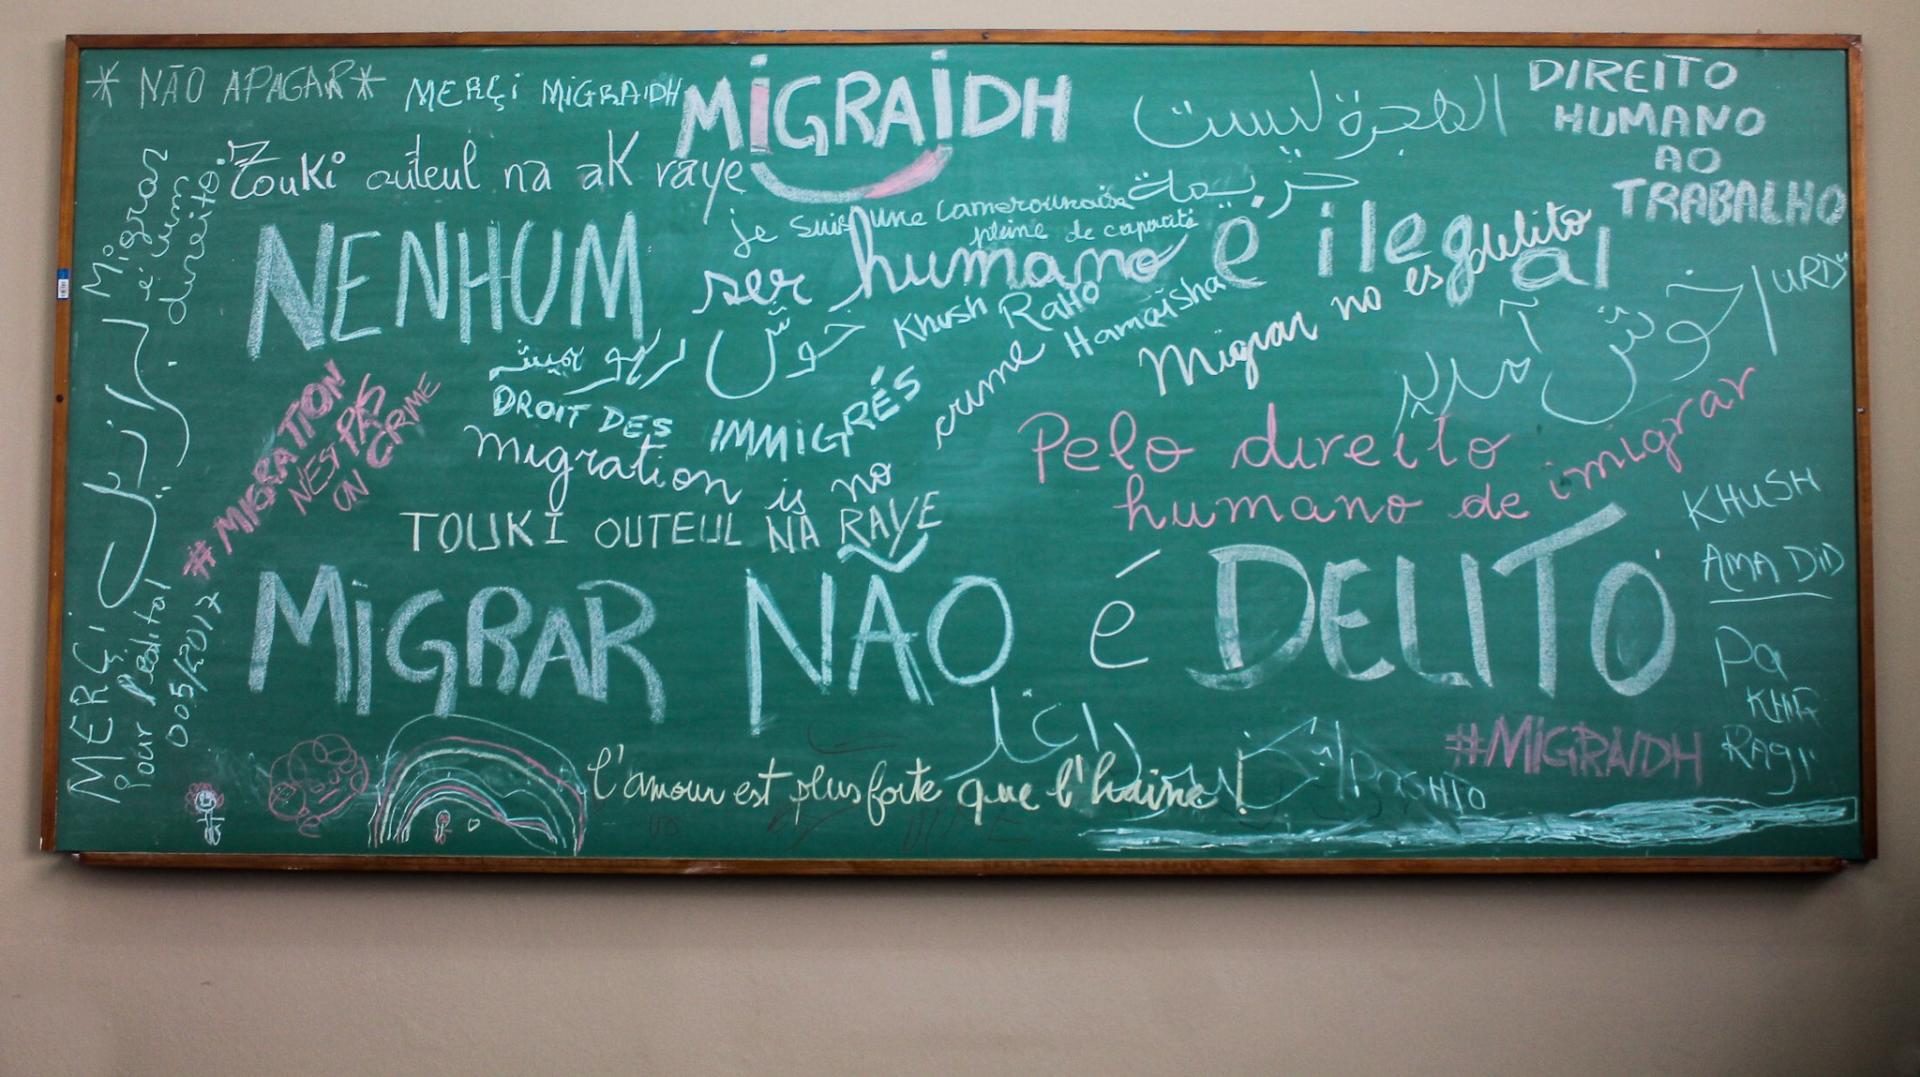 * NÃO APAGAR *
MERÇi MiGRAiDH
MiGRAiDH
الهجرة ليست
جريمة
DIREITO
HUMANO
AO
TRABALHO
Touki outeul na ak raye
Migrar
é um
direito!
je suis une Camerounaise
pleine de capacité
NENHUM
ser humano é ilegal
Migrar no es delito
URDU
خوش آمدید
Khush Raho
Hamaisha
خوش رہو ہمیشہ
DROIT DES IMMIGRÉS
migration is no
crime
#MIGRATION
N'EST PAS
UN CRIME
Pelo direito
humano de imigrar
TOUKI OUTEUL NA RAYE
KHUSH
AMA DID
MiGRAR NÃO é DELITO
Pa
KHIG
RAGI
#MIGRAIDH
MERÇi
Pour l'édital
005/2017
l'amour est plus forte que l'haine!
PASHTO